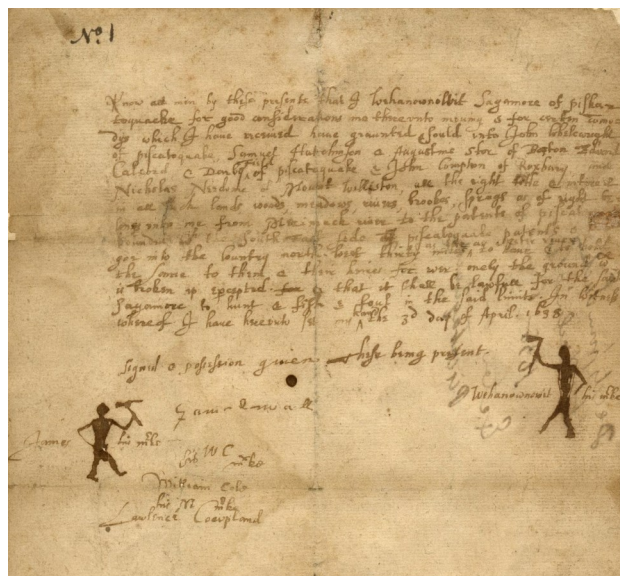 No 1
Know all men by these presents that I Wehanownowit Sagamore of piskata
toquacke for good considerations me therevnto mouing & for certen
dys which I haue receiued haue graunted & sould vnto John Whelewright
of piscatoquake, Samuel Hutchinson & Augustine Stor of Boston Edward
Calcord & Darby Field of piscatoquake & John Compton of Roxbury and
Nicholas Needome of Mount Wolliston, all the right title & interest
in all such lands woods meadows riuers brookes springs as of right be
long vnto me from Merimack riuer to the patents of piscat
bounded the South side of piscatoquake patents &
goe into the Country north west thirty miles to haue & to hold
the same to them & their heires for euer onely the ground
is broken vp excepted & that it shall be lawfull for the said
Sagamore to hunt & fish & foul in the said limits. In witnes
whereof I haue herevnto set my hand the 3d day of April 1638
Signed & possession giuen these being present.
Wehanownowit his mke
James his mke
his W C mke
William Cole
his M mke
Lawrence Coopland